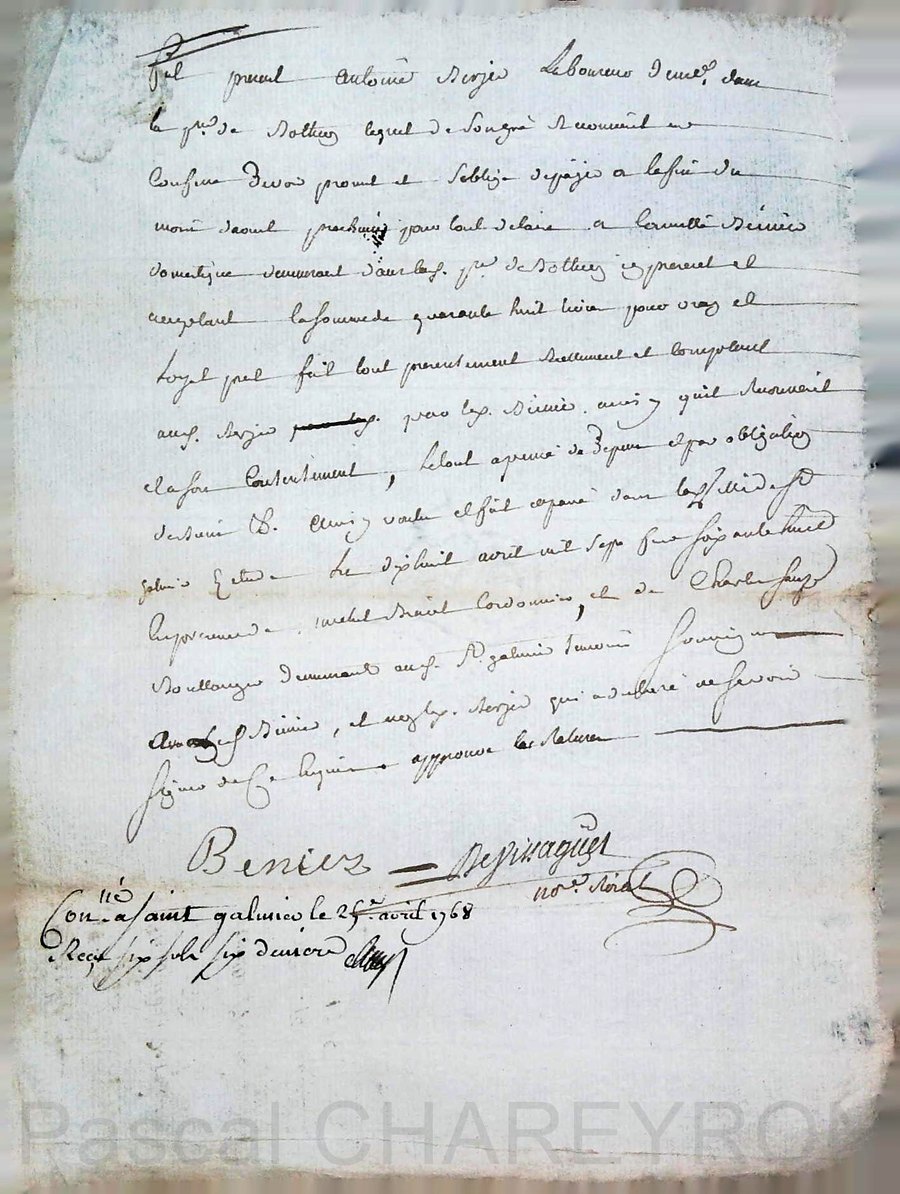 Fut present Antoine Berjer Laboureur demt. dans
la psse. de Bothieu lequel de son gré Reconnoit et
Confesse Devoir promet et S'oblige de payer a la fin du
mois d'aout prochain pour tout delaix a Benier
domestique demeurant dans lad. psse. de Bothieu icy present et
acceptant la somme de quarante huit livres pour vray et
Loyal pret fait tout presentement Reellement et Comptant
aud. Berjer par led. Benier ainsy qu'il Reconnoit
et a son Contentement, Le tout a peine de Depens et par obligation
de &. Ainsy voulu et fait et passé dans
galmier Etude Le dixhuit avril mil sept Cent soixante huit
En presence de michel Cordonnier, et de Charle
Boullanger demeurant aud. St. galmier temoins Soussignes
Avec led. Benier, et non led. Berjer qui a declaré ne Savoir
signer de Ce Enquis approuvé les Ratures
Benier
nore. Roial
Conllé a Saint galmier le 25e. avril 1768
Reçu six sols six deniers
Pascal CHAREYRON